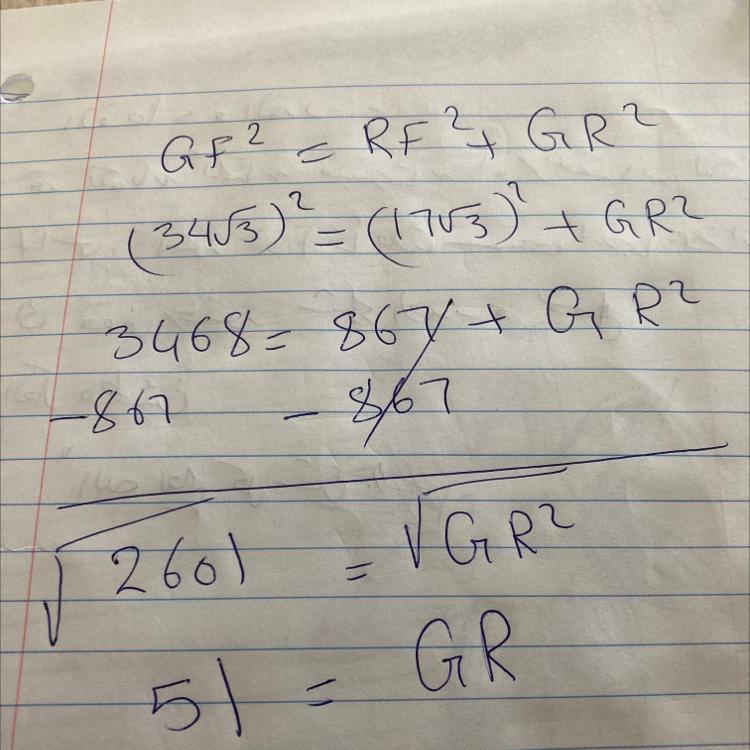 GF² = RF² + GR²
(34√3)² = (17√3)² + GR²
3468 = 867 + GR²
-867 - 867
√2601 = √GR²
51 = GR